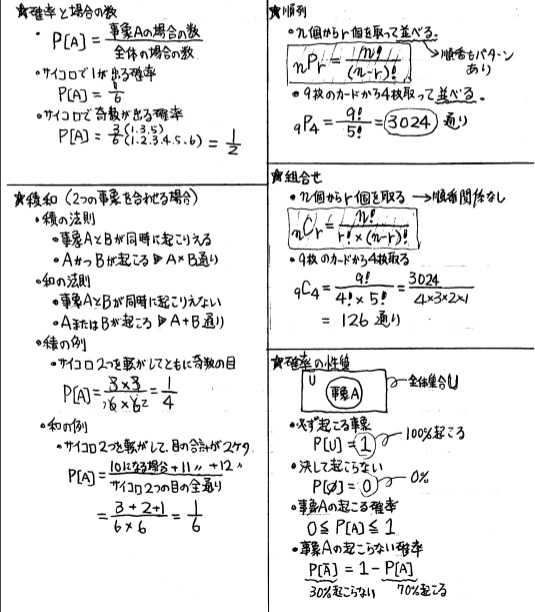 ☆確率と場合の数
・P[A] = 事象Aの場合の数/全体の場合の数
・サイコロで1が出る確率
P[A] = 1/6
・サイコロで奇数が出る確率
P[A] = 3(1.3.5)/6(1.2.3.4.5.6) = 1/2
☆積和(2つの事象を合わせる場合)
・積の法則
・事象AとBが同時に起こりえる
・AかつBが起こる ▷ A×B通り
・和の法則
・事象AとBが同時に起こりえない
・AまたはBが起こる ▷ A+B通り
・積の例
・サイコロ2つを転がしてともに奇数の目
P[A] = 3×3/6×6 = 1/4
・和の例
・サイコロ2つを転がして、目の合計が2ケタ
P[A] = 10になる場合+11〃+12〃/サイコロ2つの目の全通り
= 3+2+1/6×6 = 1/6
☆順列
・n個からr個を取って並べる。
nPr = n!/(n-r)!
→順番もパターンあり
・9枚のカードから4枚取って並べる。
9P4 = 9!/5! = 3024 通り
☆組合せ
・n個からr個を取る →順番関係なし
nCr = n!/r!×(n-r)!
・9枚のカードから4枚取る
9C4 = 9!/4!×5! = 3024/4×3×2×1
= 126 通り
☆確率の性質
U 事象A 全体集合U
・必ず起こる事象
P[U] = 1 100%起こる
・決して起こらない
P[∅] = 0 0%
・事象Aの起こる確率
0 ≦ P[A] ≦ 1
・事象Aの起こらない確率
P[A̅] = 1 - P[A]
30%起こらない 70%起こる